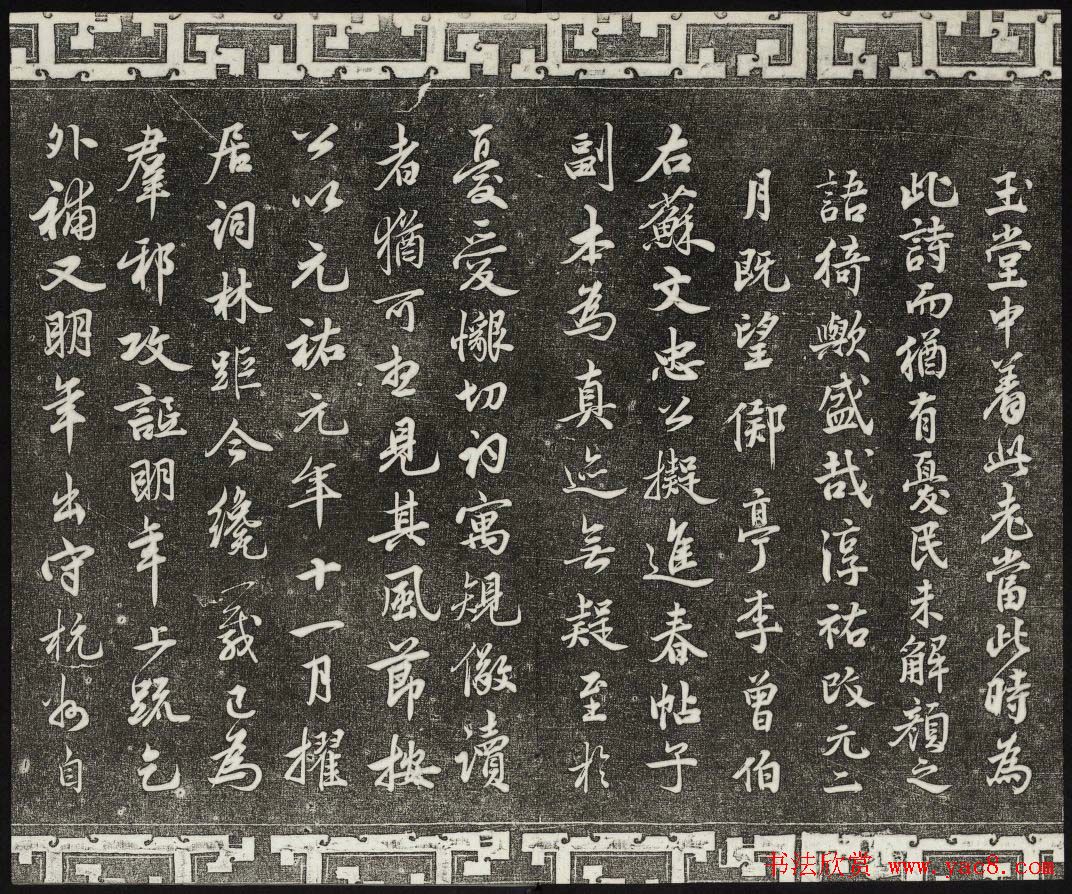 玉堂中着此老當此時為
此詩而猶有憂民未解顏之
語猗歟盛哉淳祐改元二
月既望鄊亭李曾伯
右蘇文忠公擬進春帖子
副本為真迹無疑至於
憂愛懇切初寓規儆讀
者猶可想見其風節按
公以元祐元年十一月擢
居詞林距今纔一歲已為
羣邪攻詆明年上疏乞
外補又明年出守杭州自
书法欣赏 www.yac8.com